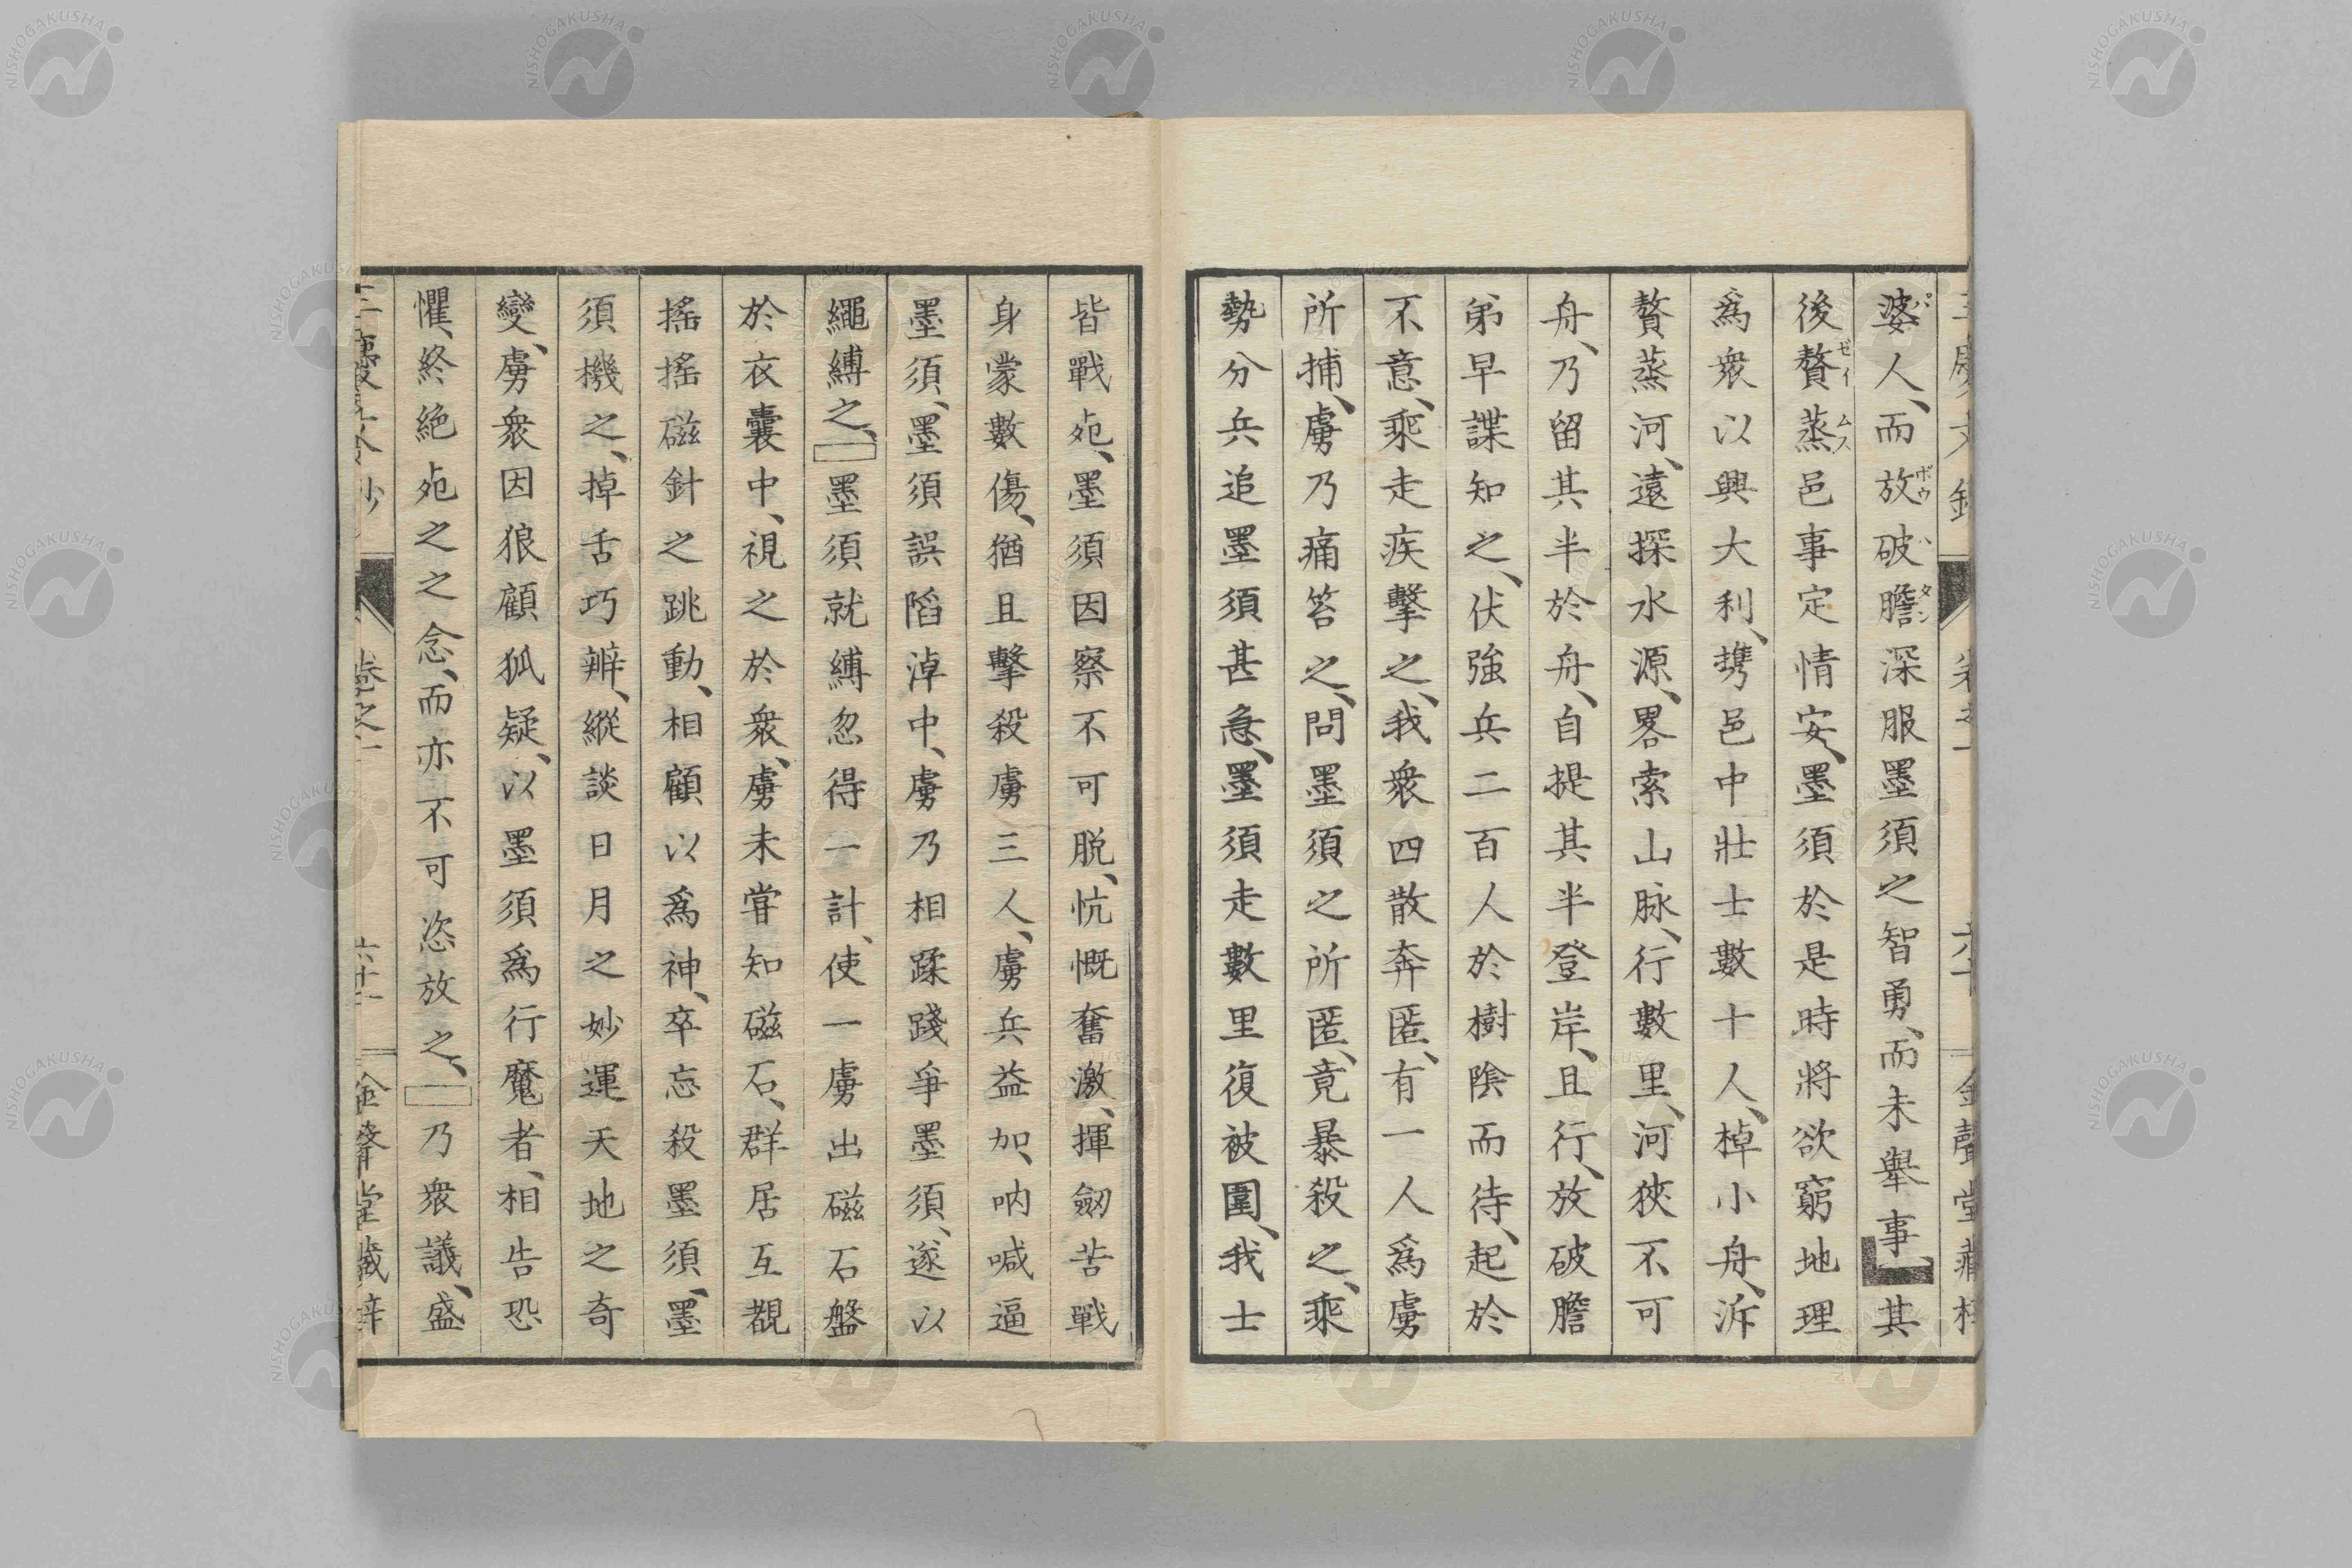 婆人、而放破膽深服墨須之智勇、而未擧事、其
パ ボウ ハ タン
後贅蒸邑事定情安、墨須於是時將欲窮地理
ゼイ ムス
爲衆以興大利、携邑中壯士數十人、棹小舟、泝
贅蒸河、遠探水源、畧索山脉、行數里、河狹不可
舟、乃留其半於舟、自提其半登岸、且行、放破膽
弟早諜知之、伏強兵二百人於樹陰而待、起於
不意、乘走疾擊之、我衆四散奔匿、有一人爲虜
所捕、虜乃痛笞之、問墨須之所匿、竟暴殺之、乘
勢分兵追墨須甚急、墨須走數里復被圍、我士
皆戰死、墨須因察不可脱、忼慨奮激、揮劔苦戰
身蒙數傷、猶且擊殺虜三人、虜兵益加、吶喊逼
墨須、墨須誤陷淖中、虜乃相蹂踐爭墨須、遂以
繩縛之、墨須就縛忽得一計、使一虜出磁石盤
於衣囊中、視之於衆、虜未甞知磁石、群居互覩
搖搖磁針之跳動、相顧以爲神、卒忘殺墨須、墨
須機之、掉舌巧辨、縱談日月之妙運天地之奇
變、虜衆因狼顧狐疑、以墨須爲行魔者、相告恐
懼、終絶死之之念、而亦不可恣放之、乃衆議、盛